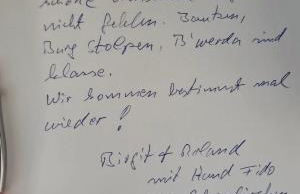 schöne
nicht fehlen. Bautzen,
Burg Stolpen, B'werda sind
klasse.
Wir kommen bestimmt mal
wieder!
Birgit + Roland
mit Hund Fido